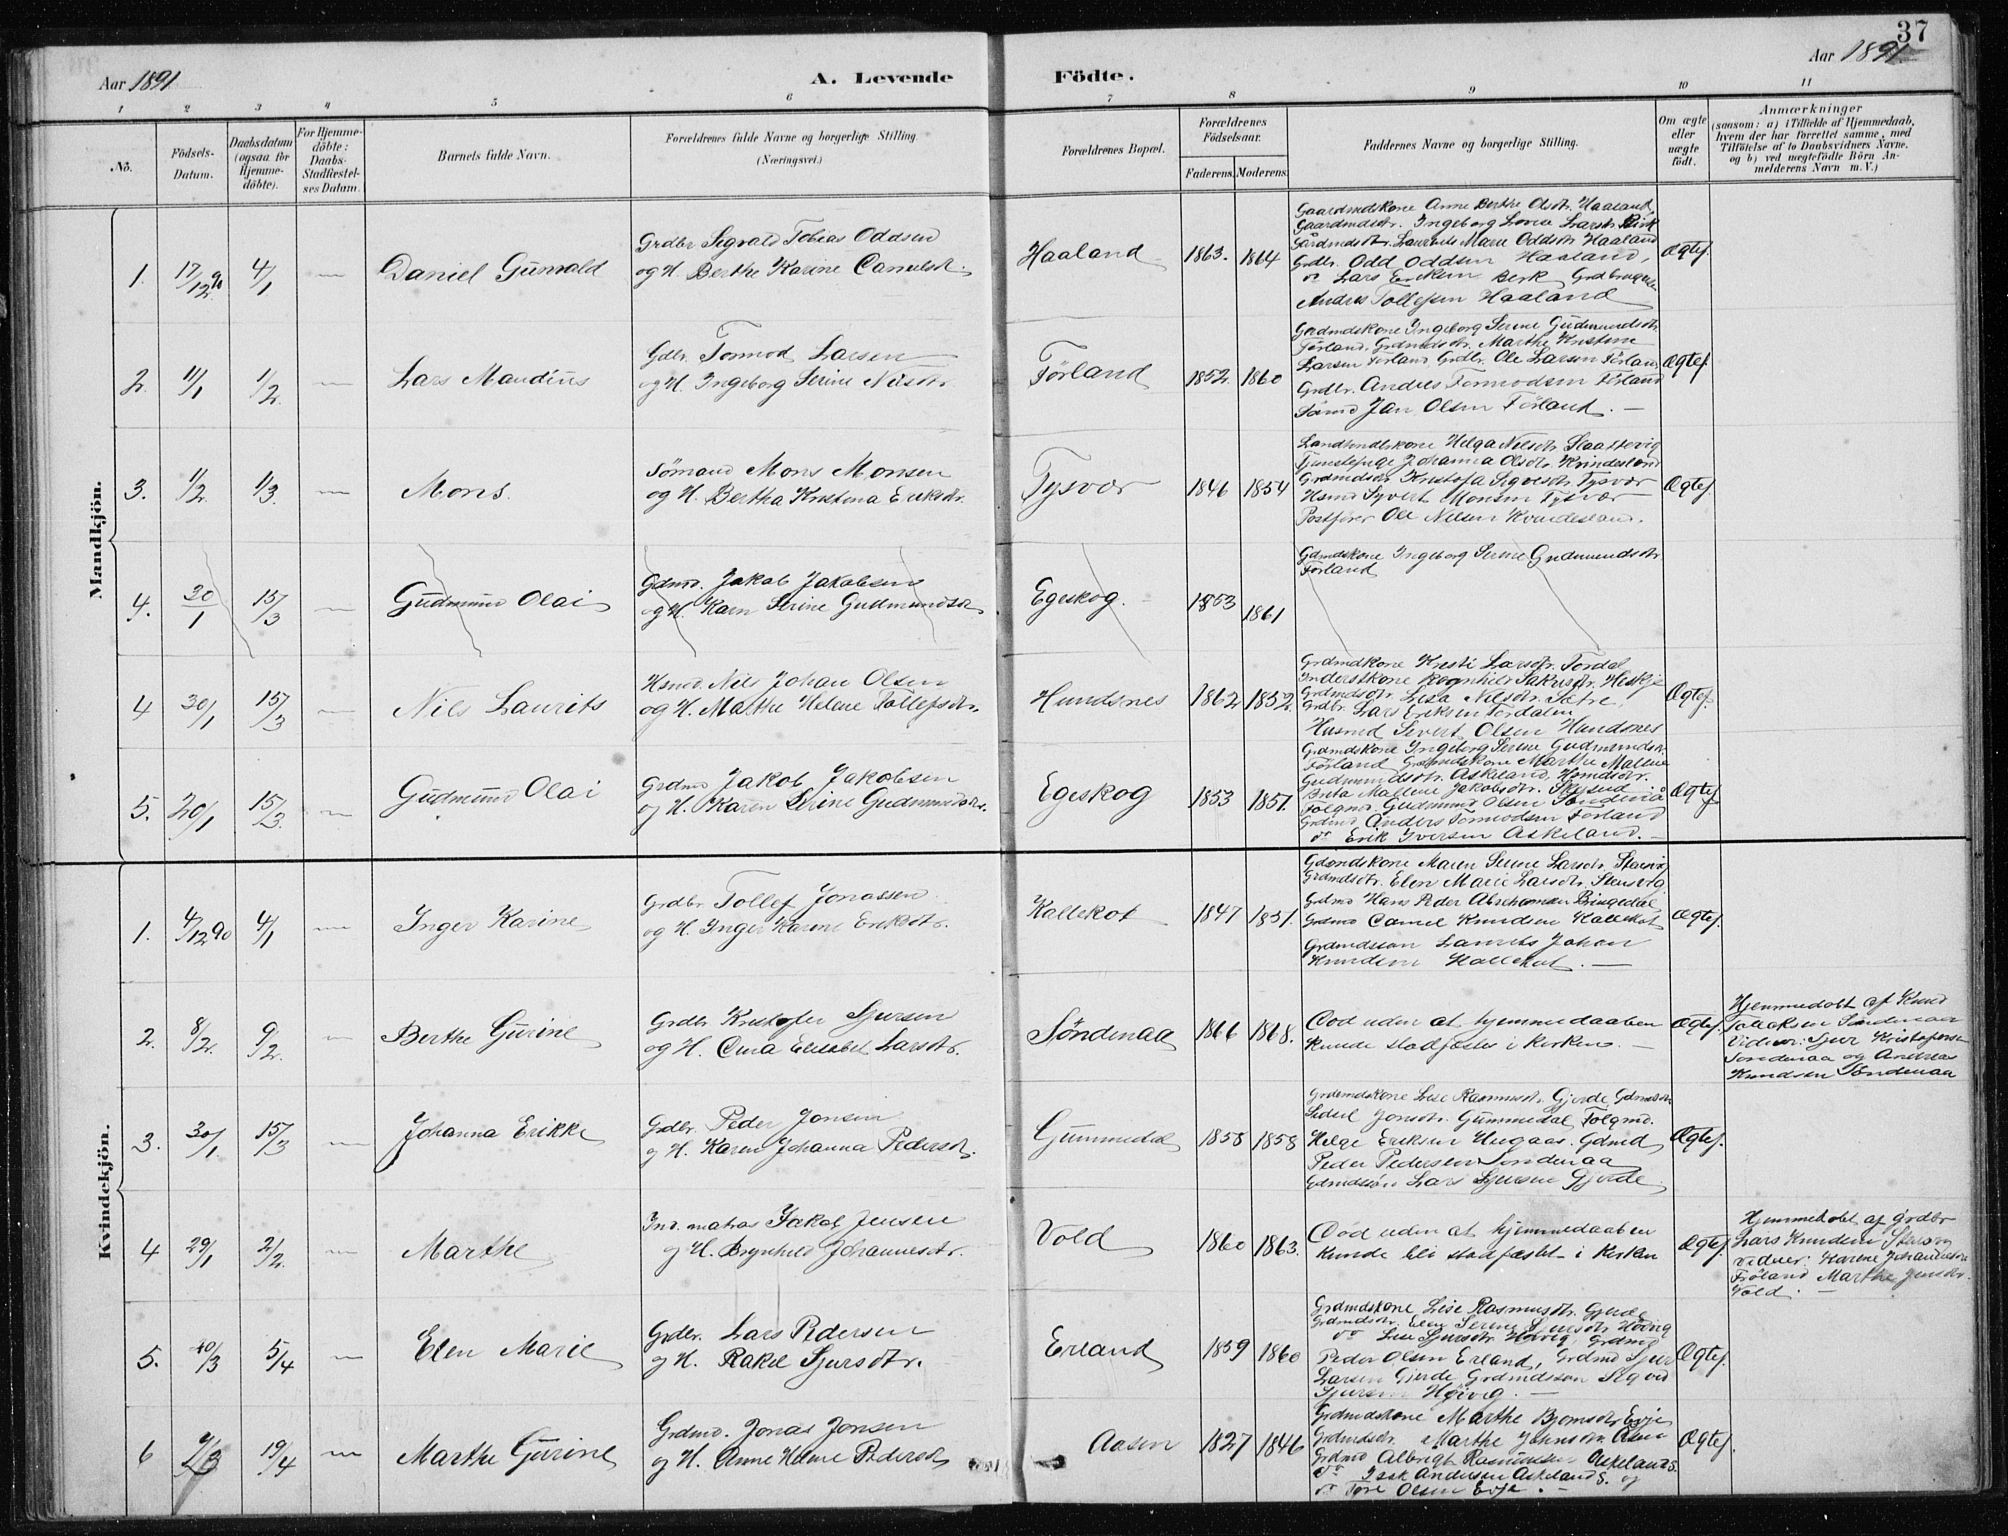 37
Aar 1891
A. Levende Födte.
Aar 1891
1 2 3 4 5 6 7 8 9 10 11
No.
Födsels-Datum.
Daabsdatum (ogsaa for Hjemmedöbte).
For Hjemmedöbte: Daabs-Stadfæstelses Datum.
Barnets fulde Navn.
Forældrenes fulde Navne og borgerlige Stilling.
(Næringsvei.)
Forældrenes Bopæl.
Forældrenes Födselsaar.
Faderens. Moderens.
Faddernes Navne og borgerlige Stilling.
Om ægte eller uægte födt.
Anmærkninger
(saasom: a) i Tilfælde af Hjemmedaab,
hvem der har forrettet samme, med
Tilföielse af to Daabsvidners Navne.
og b) ved uægtefödte Börn Anmelderens Navn m.V.)
Mandkjön.
1. 17/12 90 4/1 — Daniel Gunvald
Grdbr Sigvald Tobias Oddsen
og H. Berthe Karine
Haaland 1863. 1864
Gaardmdskone Anne Berthe Olsdtr. Haaland
Gaardmdsdtr. Ingeborg Lovise Larsdtr Birk
Gårdmdsdtr. Laurentse Marie Oddsdtr Haaland
Grdbr. Odd Oddsen Haaland,
do Lars Eriksen Berk Grdbruger
Andreas Tollefsen Haaland
Ægtef.
2. 11/1 1/2. — Lars Mandius
Gdbr. Tormod Larsen
og H. Ingeborg Serine Nilsdtr.
Förland 1852. 1860
Gaardmdskone Ingeborg Serine Gudmundsdtr.
Förland. Grdmdsdtr. Marthe Kristine
Larsen Förland Grdbr. Ole Larsen Förland
Grdbr. Anders Tormodsen Förland
Sömd Jan Olsen Förland. —
Ægtef.
3. 1/2. 1/3. — Mons.
Sömand Mons Monsen
og H. Bertha Kristina Eriksdtr.
Tysvær 1846 1854
Landhandlskone Helga Nilsdtr Slaattevig
Tjenestepige Johanna Olsdtr. Kvindesland
Grdmdsdtr Kristofa Sigvesdtr. Tysvær
Hsmd Syvert Monsen Tysvær
Postfører Ole Nilsen Kvindesland.
Ægtef.
4. 20/1 15/3 — Gudmund Olai
Gdmd. Jakob Jakobsen
og H. Karn Serine Gudmundsdtr
Egeskog. 1853 1861
Gdmdskone Ingeborg Serine Gudmundsdtr
Förland
4 30/1 15/3 — Nils Laurits
Hsmd. Nils Johan Olsen
og H. Marthe Helene Tollefsdtr.
Hundsnes 1862 1852.
Grdmdkone Kresti Larsdtr. Tordal
Inderstkone Rognhild Heskje
Grdmdsdtr. Lisa Nilsdtr. Sætre,
Grdbr. Lars Eriksen Tordalen
Husmd Sivert Olsen Hundsnes
Ægtef.
5. 20/1 15/3. — Gudmund Olai
Grdmd Jakob Jakobsen
og H. Karen Serine Gudmundsdtr.
Egeskog 1853 1851.
Grdmdskone Ingeborg Serine Gudmundsdtr.
Förland Grdmdskone Marthe Malene
Gudmundsdtr. Askeland. Hsmdsdtr.
Brita Malene Jakobsdtr. Skeiseid
Folgmd. Gudmund Olsen Söndenå
Grdmd Anders Tormodsen Förland
do Erik Iversen Askeland. —
Ægtef
Kvindekjön.
1. 4/12 90 4/1 — Inger Karine
Grdbr Tollef Jonassen
og H. Inger Karine Eriksdtr.
Kallekot 1847 1851.
Gdmdskone Maren Serine Larsdtr. Stensvig
Grdmdsdtr. Elen Marie Larsdtr. Stensvig
Grdmd Hans Peder Abrahamsen Bringedal
Grdmd Camel Knudsen Kallekot
Grdmdssön Laurits Johan
Knudsen Kallekot. —
Ægtef.
2. 8/2. 9/2. — Berthe Gurine
Grdbr Kristofer Sjursen
og H. Elisabet Larsdtr.
Söndenaa 1866 1868.
Död uden at hjemmedaaben
kunde stadfæstes i kirken. —
Ægtef.
Hjemmedöbt af Knud
Isaaksen Söndenaa
Vidner: Sjur Kristofersen
Söndenaa og Andreas
Knudsen Söndenaa
3. 30/1 15/3 — Johanna Erikke
Grdbr. Peder Jonsen
og H. Karen Johanna Pedersdtr.
Gummedal 1858 1858
Grdmdskone Lise Rasmusdtr. Gjerde Gdmdsdtr
Sidsel Jonsdtr. Gummedal Folgmd.
Helge Eriksen Uugaas. Gdmd
Peder Pedersen Söndenaa
Gdmdssön Lars Sjursen Gjerde.
Ægtef.
4 29/1 2/2. — Marthe
Ind. matros Jakob Jensen
og H. Brynhild Johannesdtr.
Vold 1860 1863.
Död uden at hjemmedaaben
kunde bli stadfæstet i kirken
Ægtef.
Hjemmedöbt af grdbr
Lars Knudsen Stensvig
vidner: Karene Johannesdtr
Fröland Marthe Jensdtr.
Vold. —
5. 10/3 5/4 — Elen Marie
Grdbr. Lars Pedersen
og H. Rakel Sjursdtr.
Erland 1859 1860
Grdmdskone Lise Rasmusdtr. Gjerde
Grdmdsdtr. Elen Serine Høivig
do Lise Sjursdtr. Høivig, Grdmd
Peder Olsen Erland, Grdmd Sjur
Larsen Gjerde Grdmdssön Sigvid
Sjursen Høivig. —
Ægtef.
6 19/4 — Marthe Gurine
Grdmd. Jonas Jonsen
og H. Anne Helene Pedersdtr
Aasen 1827 1846
Grdmdskone Marthe Bjornsdtr Evje
Grdmdsdtr. Marthe Johnsdtr. Åsen
Grdmd Albregt Rasmussen Askeland S.
do Isak Andersen Askeland S. og
do Tore Olsen Evje. —
Ægtef.